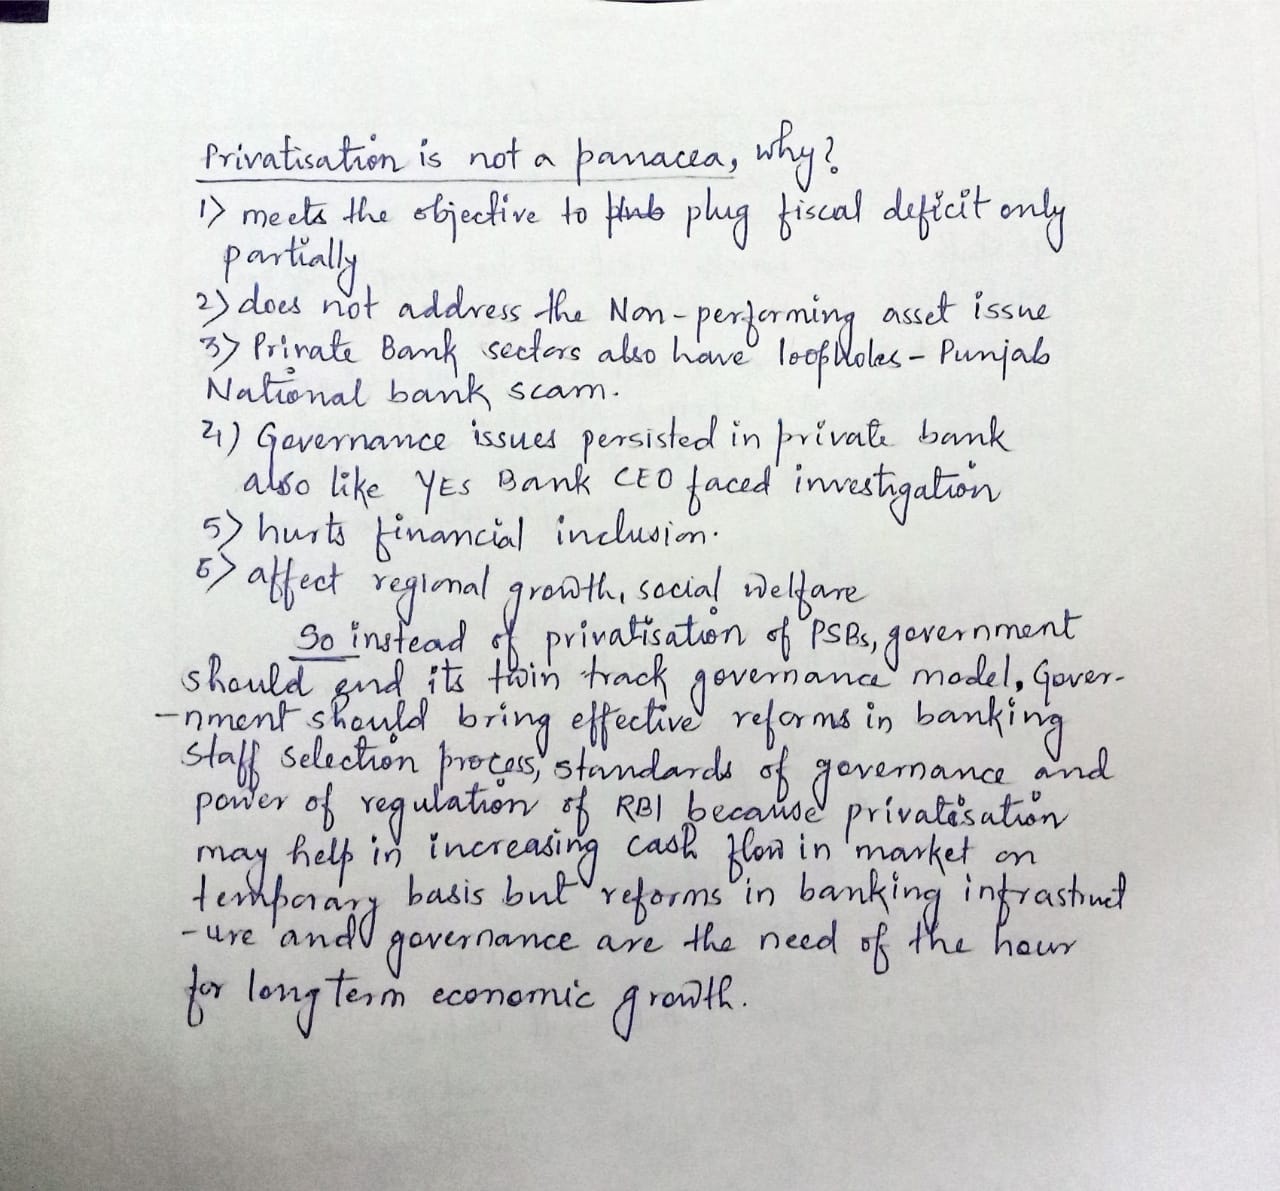 Privatisation is not a panacea, why?
1) meets the objective to plug fiscal deficit only
partially
2) does not address the Non-performing asset issue
3) Private Bank sectors also have loopholes - Punjab
National bank scam.
4) Governance issues persisted in private bank
also like YES Bank CEO faced investigation
5) hurts financial inclusion.
6) affect regional growth, social welfare
So instead of privatisation of PSBs, government
should end its twin track governance model, Gover-
-nment should bring effective reforms in banking
staff selection process, standards of governance and
power of regulation of RBI because privatisation
may help in increasing cash flow in market on
temporary basis but reforms in banking infrastruct
-ure and governance are the need of the hour
for long term economic growth.